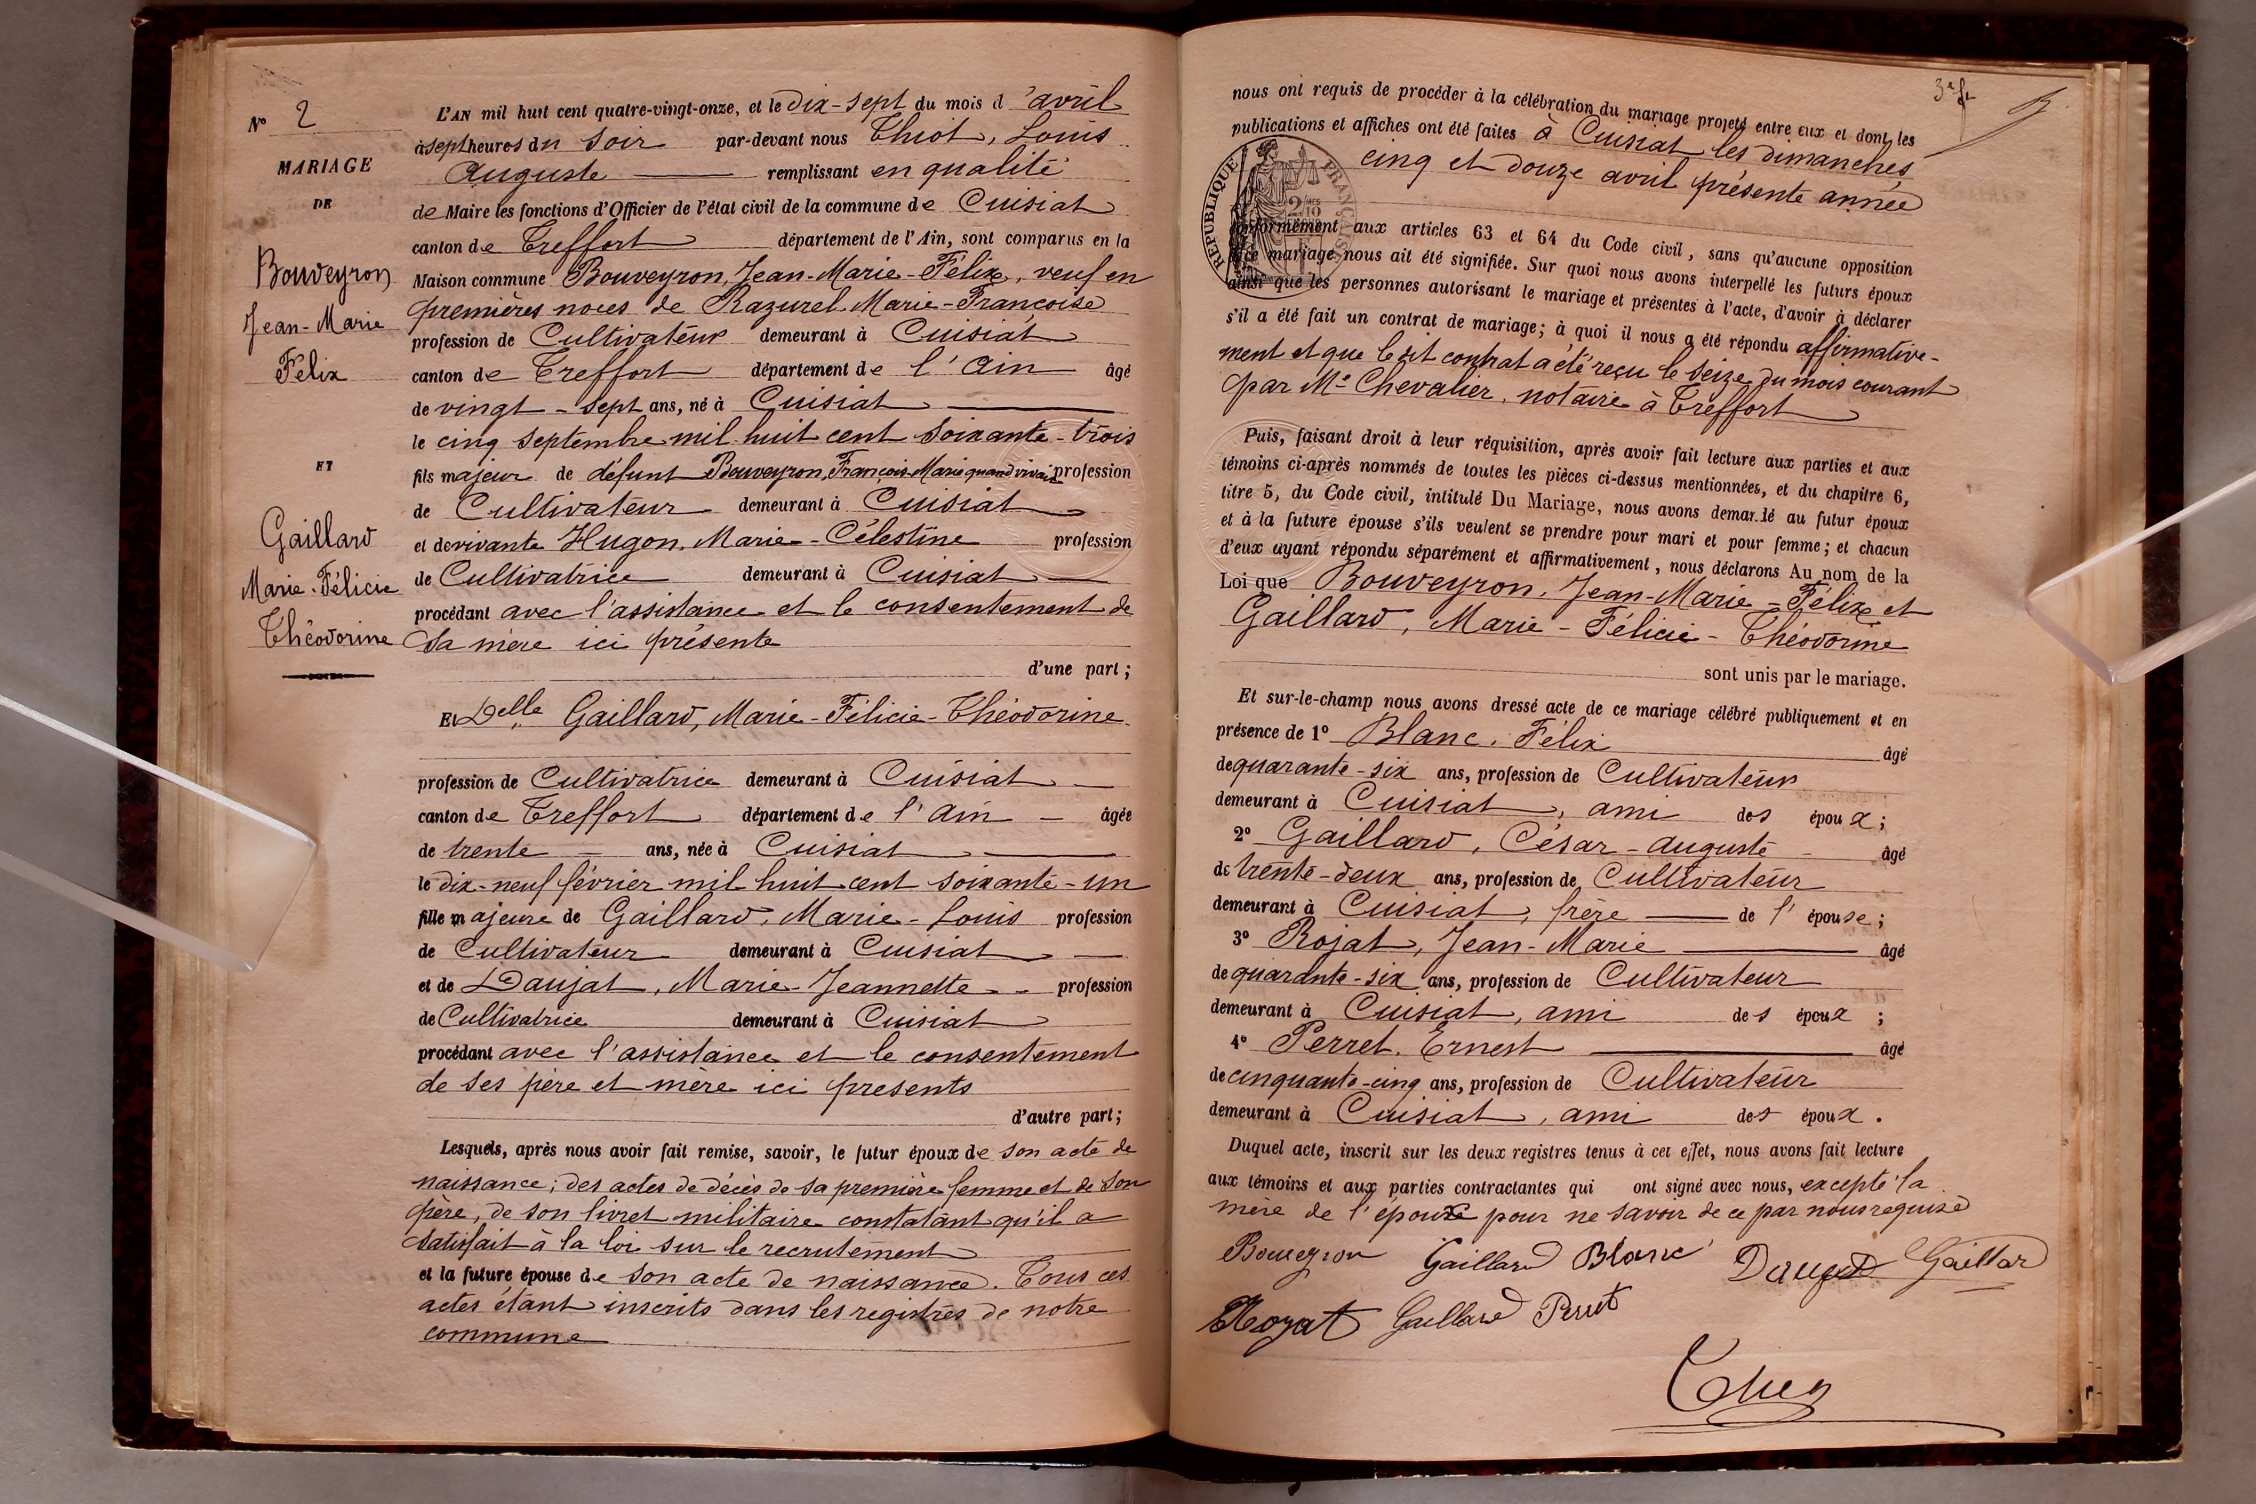 N° 2
MARIAGE
DE
Bouveyron
Jean-Marie
Félix
ET
Gaillard
Marie-Félicie
Théodorine
L'AN mil huit cent quatre-vingt-onze, et le dix-sept du mois d'avril
à sept heures du soir par-devant nous Thiot, Louis
Auguste remplissant en qualité
de Maire les fonctions d'Officier de l'état civil de la commune de Cuisiat
canton de Treffort département de l'Ain, sont comparus en la
Maison commune Bouveyron, Jean-Marie-Félix, veuf en
premières noces de Razurel Marie-Françoise
profession de Cultivateur demeurant à Cuisiat
canton de Treffort département de l'Ain âgé
de vingt-sept ans, né à Cuisiat
le cinq septembre mil huit cent soixante-trois
fils majeur de défunt Bouveyron, François-Marie quand vivait profession
de Cultivateur demeurant à Cuisiat
et de vivante Hugon, Marie-Célestine profession
de Cultivatrice demeurant à Cuisiat
procédant avec l'assistance et le consentement de
sa mère ici présente
d'une part;
Et Delle Gaillard, Marie-Félicie-Théodorine
profession de Cultivatrice demeurant à Cuisiat
canton de Treffort département de l'Ain âgée
de trente ans, née à Cuisiat
le dix-neuf février mil huit cent soixante-un
fille majeure de Gaillard, Marie-Louis profession
de Cultivateur demeurant à Cuisiat
et de Daujat, Marie-Jeannette profession
de Cultivatrice demeurant à Cuisiat
procédant avec l'assistance et le consentement
de ses père et mère ici presents
d'autre part;
Lesquels, après nous avoir fait remise, savoir, le futur époux de son acte de
naissance; des actes de décès de sa première femme et de son
père, de son livret militaire constatant qu'il a
satisfait à la loi sur le recrutement
et la future épouse de son acte de naissance. Tous ces
actes étant inscrits dans les registres de notre
commune
nous ont requis de procéder à la célébration du mariage projeté entre eux et dont les
publications et affiches ont été faites à Cuisiat les dimanches
cinq et douze avril présente année
RÉPUBLIQUE FRANÇAISE
2/10
conformément aux articles 63 et 64 du Code civil, sans qu'aucune opposition
à ce mariage nous ait été signifiée. Sur quoi nous avons interpellé les futurs époux
ainsi que les personnes autorisant le mariage et présentes à l'acte, d'avoir à déclarer
s'il a été fait un contrat de mariage; à quoi il nous a été répondu affirmative-
ment et que le dit contrat a été reçu le seize du mois courant
par Me Chevalier, notaire à Treffort
Puis, faisant droit à leur réquisition, après avoir fait lecture aux parties et aux
témoins ci-après nommés de toutes les pièces ci-dessus mentionnées, et du chapitre 6,
titre 5, du Code civil, intitulé Du Mariage, nous avons demandé au futur époux
et à la future épouse s'ils veulent se prendre pour mari et pour femme; et chacun
d'eux ayant répondu séparément et affirmativement, nous déclarons Au nom de la
Loi que Bouveyron, Jean-Marie-Félix et
Gaillard, Marie-Félicie-Théodorine
sont unis par le mariage.
Et sur-le-champ nous avons dressé acte de ce mariage célébré publiquement et en
présence de 1° Blanc, Félix âgé
de quarante-six ans, profession de Cultivateur
demeurant à Cuisiat, ami des époux;
2° Gaillard, César-Auguste âgé
de trente-deux ans, profession de Cultivateur
demeurant à Cuisiat, frère de l'épouse;
3° Rojat, Jean-Marie âgé
de quarante-six ans, profession de Cultivateur
demeurant à Cuisiat, ami des époux;
4° Perret, Ernest âgé
de cinquante-cinq ans, profession de Cultivateur
demeurant à Cuisiat, ami des époux.
Duquel acte, inscrit sur les deux registres tenus à cet effet, nous avons fait lecture
aux témoins et aux parties contractantes qui ont signé avec nous, excepté la
mère de l'époux pour ne savoir de ce par nous requise
Bouveyron Gaillard Blanc Daujat Gaillard
Rojat Gaillard Perret